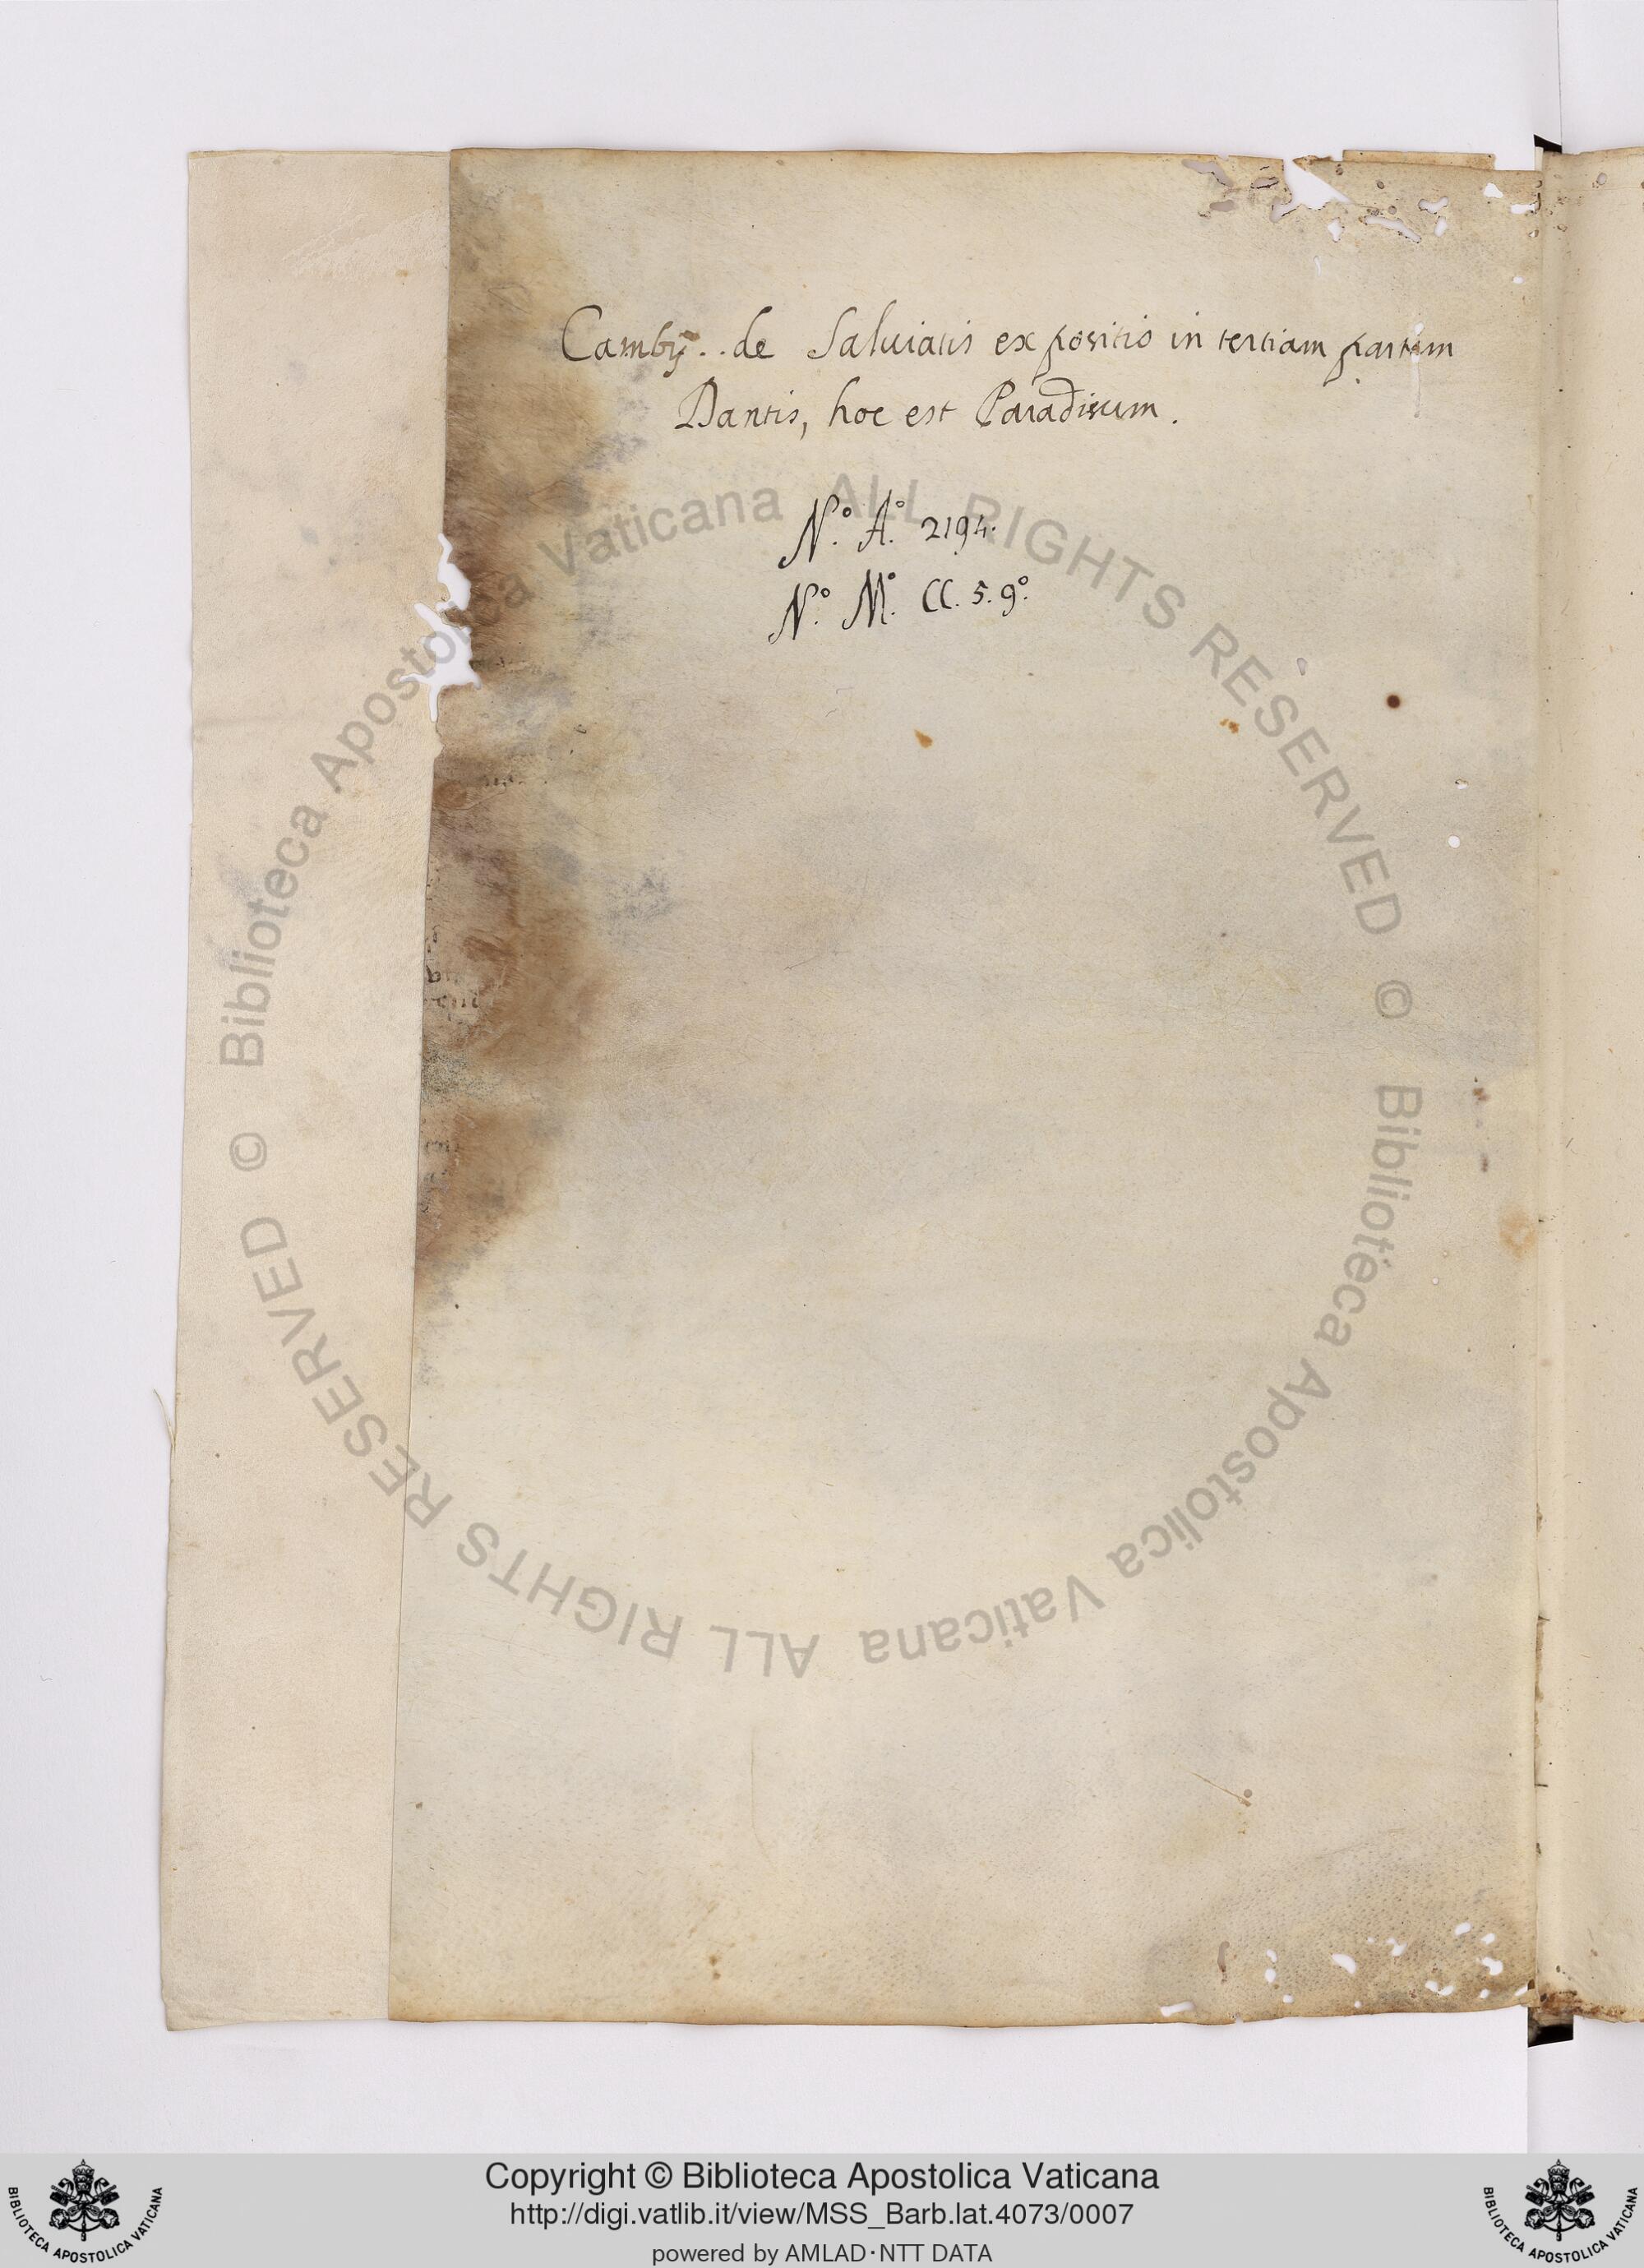 Cambij .. de Saluiatis expositio in tertiam partem
Dantis, hoc est Paradisum.
N.º A.º 2194.
N.º M.º CC. 5. 9º.
© Biblioteca Apostolica Vaticana ALL RIGHTS RESERVED
© Biblioteca Apostolica Vaticana ALL RIGHTS RESERVED
BIBLIOTECA APOSTOLICA VATICANA
Copyright © Biblioteca Apostolica Vaticana
http://digi.vatlib.it/view/MSS_Barb.lat.4073/0007
powered by AMLAD·NTT DATA
BIBLIOTECA APOSTOLICA VATICANA